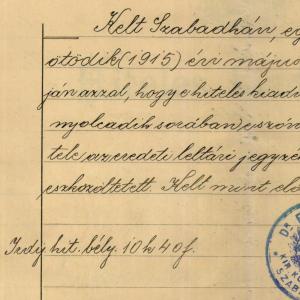 Kelt Szabadhán, eg
ötödik (1915) évi május
ján azzal, hogy e hiteles kiadi
nyolcadik sorában e szón
tele az eredeti leltári jegyzé
eszközöltetett. Kelt mint elő
hit. bély. 10 k 40 f.
DR
KIR. KÖ
SZAB